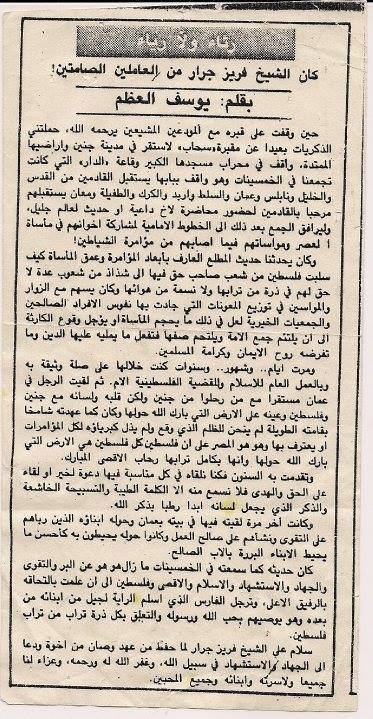 رثاء ولا رياء
كان الشيخ فريز جرار من العاملين الصامتين!
بقلم: يوسف العظم
حين وقفت على قبره مع المودعين المشيعين يرحمه الله، حملتني
الذكريات بعيدا عن مقبرة «سحاب» لاستقر في مدينة جنين واراضيها
الممتدة، واقف في محراب مسجدها الكبير وقاعة «الدار» التي كانت
تجمعنا في الخمسينات وهو واقف ببابها يستقبل القادمين من القدس
والخليل ونابلس وعمان والسلط واربد والكرك والطفيلة ومعان يستقبلهم
مرحبا بالقادمين لحضور محاضرة لاخ داعية او حديث لعالم جليل،
وليرافق الجمع بعد ذلك الى الخطوط الامامية لمشاركة اخوانهم في مأساة
العصر ومواساتهم فيما اصابهم من مؤامرة الشياطين!
وكان يحدثنا حديث المطلع العارف بأبعاد المؤامرة وعمق المأساة كيف
سلبت فلسطين من شعب صاحب حق فيها الى شذاذ من شعوب عدة لا
حق لهم في ذرة من ترابها ولا نسمة من هوائها وكان يسهم مع الزوار
والمواسين في توزيع المعونات التي جادت بها نفوس الافراد الصالحين
والجمعيات الخيرية لعل في ذلك ما يحجم المأساة او يؤجل وقوع الكارثة
الى ان يلتئم جمع الامة ويلتحم صفها فتفعل ما يمليه عليها الدين وما
تفرضه روح الايمان وكرامة المسلمين.
ومرت ايام.. وشهور.. وسنوات كنت خلالها على صلة وثيقة به
وبالعمل العام للاسلام والقضية الفلسطينية الام. ثم لقيت الرجل في
عمان مستقرا مع من رحلوا من جنين ولكن قلبه ولسانه مع جنين
وفلسطين وعينه على الارض التي بارك الله حولها وكان كما عهدته شامخا
بقامته الطويلة لم ينحن للظلم الذي وقع ولم يذل كبرياؤه لكل المؤامرات
او يعترف بها وهو هو المصر على ان فلسطين كل فلسطين هي الارض التي
بارك الله حولها وانها بكامل ترابها رحاب الاقصى المبارك.
وتقدمت به السنون فكنا نلقاه في كل مناسبة فيها دعوة لخير او لقاء
على الحق والهدى فلا نسمع منه الا الكلمة الطيبة والتسبيحة الخاشعة
والذكر الذي يجعل لسانه ابدا رطبا بذكر الله.
وكانت آخر مرة لقيته فيها في بيته بعمان وحوله ابناؤه الذين رباهم
على التقوى ونشأهم على صالح العمل وكانوا حوله يحيطون به كأحسن ما
يحيط الابناء البررة بالاب الصالح.
كان حديثه كما سمعته في الخمسينات ما زال هو هو عن البر والتقوى
والجهاد والاستشهاد والاسلام والاقصى وفلسطين الى ان علمت بالتحاقه
بالرفيق الاعلى، وترجل الفارس الذي اسلم الراية لجيل من ابنائه من
بعده وهو يوصيهم بحب الله ورسوله والتعلق بكل ذرة تراب من تراب
فلسطين.
سلام على الشيخ فريز جرار لما حفظ من عهد وصان من اخوة ودعا
الى الجهاد والاستشهاد في سبيل الله، وغفر الله له ورحمه، وعزاء لنا
جميعا ولاسرته وابنائه وجميع المحبين.